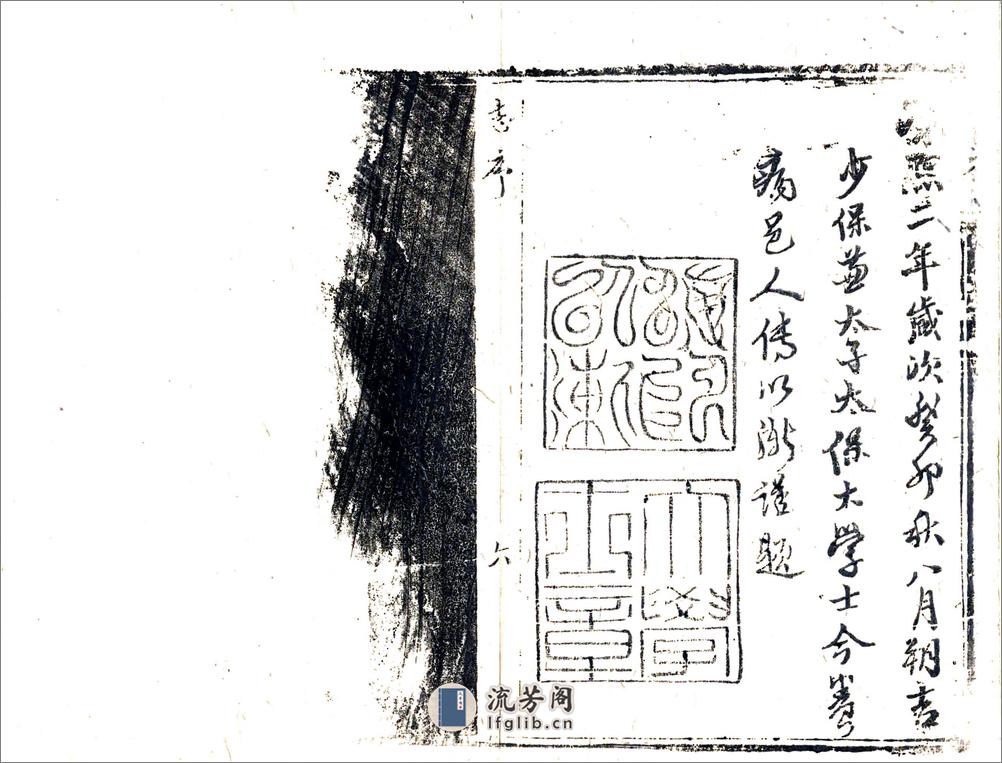 熙二年歲次癸卯秋八月朔
少保兼太子太保大學士今養
痾邑人傅以漸謹題
大學
士章
志序
六
流芳阁
lfglib.cn